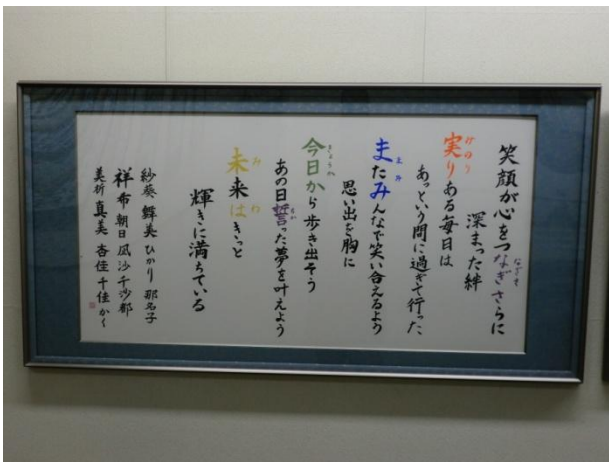 笑顔が心をつなぎさらに
深まった絆
実りある毎日は
あっという間に過ぎて行った
またみんなで笑い合えるよう
思い出を胸に
今日から歩き出そう
あの日誓った夢を叶えよう
未来はきっと
輝きに満ちている
紗葵 舞美 ひかり 那名子
祥希 朝日 凪沙 千沙都
美祈 真美 杏佳 千佳 かく